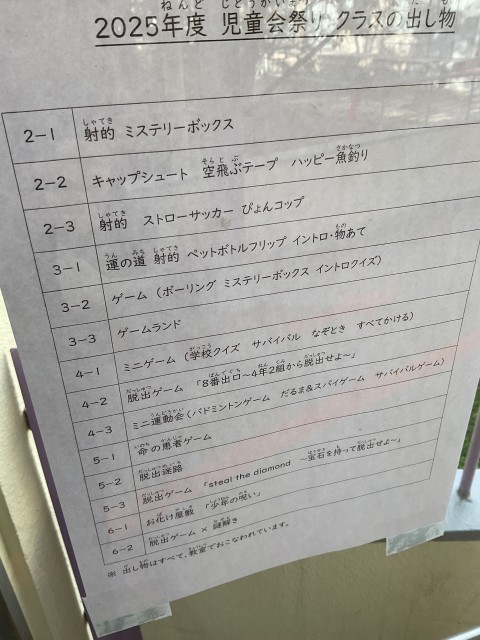 2025年度 児童会祭り クラスの出し物
2-1 射的 ミステリーボックス
2-2 キャップシュート 空飛ぶテープ ハッピー魚釣り
2-3 射的 ストローサッカー ぴょんコップ
3-1 運の道 射的 ペットボトルフリップ イントロ・物あて
3-2 ゲーム（ボーリング ミステリーボックス イントロクイズ）
3-3 ゲームランド
4-1 ミニゲーム（学校クイズ サバイバル なぞとき すべてかける）
4-2 脱出ゲーム 「8番出口～4年2組から脱出せよ～」
4-3 ミニ運動会（バドミントンゲーム だるま&スパイゲーム サバイバルゲーム）
5-1 命の患者ゲーム
5-2 脱出迷路
5-3 脱出ゲーム 「steal the diamond ～宝石を持って脱出せよ～」
6-1 お化け屋敷 「少年の呪い」
6-2 脱出ゲーム × 謎解き
※ 出し物はすべて、教室でおこなわれています。